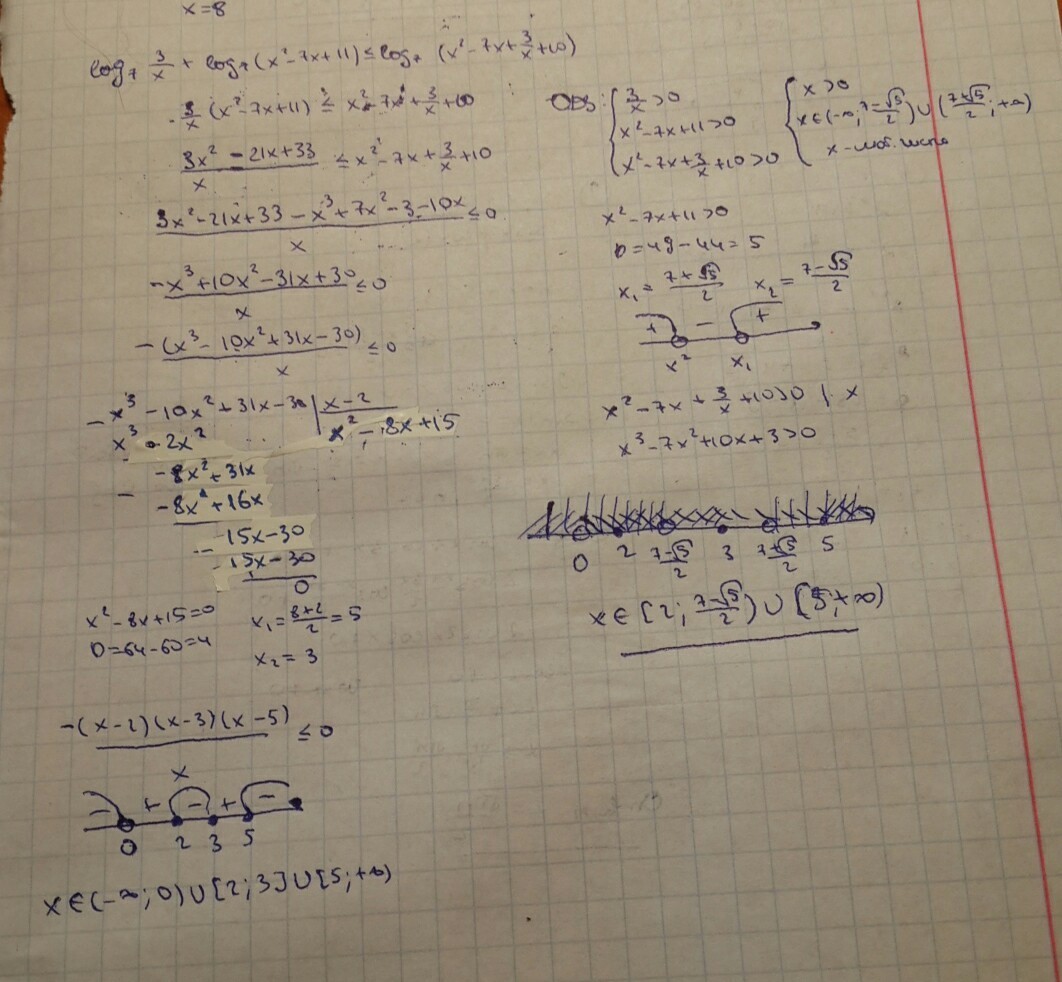 x=8
log₇ 3/x + log₇(x²-7x+11) ≤ log₇ (x²-7x+3/x+10)
3/x (x²-7x+11) ≤ x²-7x+3/x+10
(3x²-21x+33)/x ≤ x²-7x+3/x+10
(3x²-21x+33-x³+7x²-3-10x)/x ≤0
(-x³+10x²-31x+30)/x ≤0
-(x³-10x²+31x-30)/x ≤0
x³-10x²+31x-30 | x-2
x³-2x² | x²-8x+15
-8x²+31x
-8x²+16x
15x-30
15x-30
0
x²-8x+15=0
D=64-60=4
x₁=(8+2)/2=5
x₂=3
-(x-2)(x-3)(x-5)/x ≤0
- + - + -
0 2 3 5
x∈(-∞;0)∪[2;3]∪[5;+∞)
ОДЗ: { 3/x >0 { x>0
x²-7x+11>0 x∈(-∞;(7-√5)/2)∪((7+√5)/2;+∞)
x²-7x+3/x+10>0 x-
x²-7x+11>0
D=49-44=5
x₁=(7+√5)/2 x₂=(7-√5)/2
+ - +
x² x₁
x²-7x+3/x+10>0 | x
x³-7x²+10x+3>0
0 2 (7-√5)/2 3 (7+√5)/2 5
x∈[2;(7-√5)/2)∪[5;+∞)